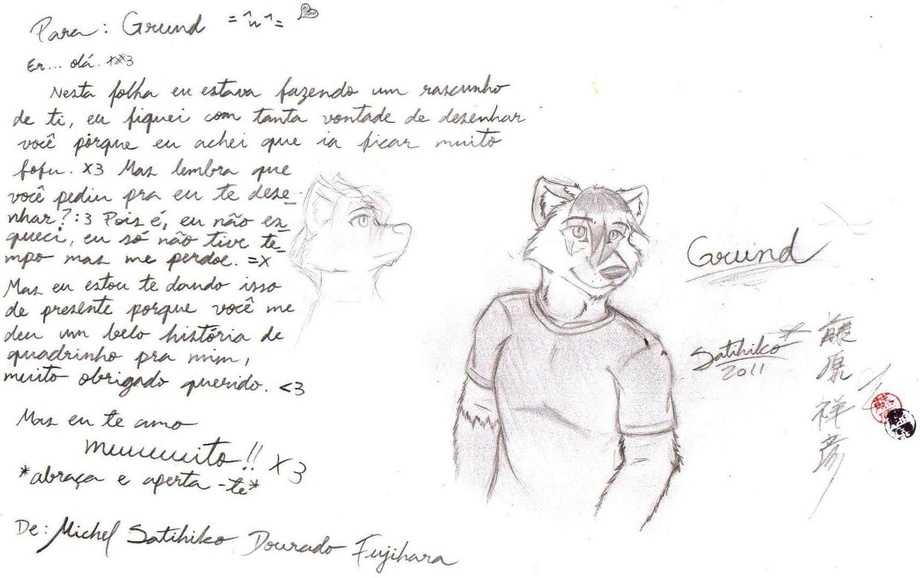 Para: Grund =^w^=
Er... olá. x3
Nesta folha eu estava fazendo um rascunho
de ti, eu fiquei com tanta vontade de desenhar
você pòrque eu achei que ia ficar muito
fofu. x3 Mas lembra que
você pediu pra eu te dese-
nhar? :3 Pois é, eu não es-
queci, eu só não tive te-
mpo mas me perdoe. =x
Mas eu estou te dando isso
de presente porque você me
deu um belo história de
quadrinho pra mim,
muito obrigado querido. <3
Mas eu te amo
muuuuuito!! x3
*abraça e aperta-te*
De: Michel Satihiko Dourado Fujihara
Grund
Satihiko*
2011
藤原祥彦